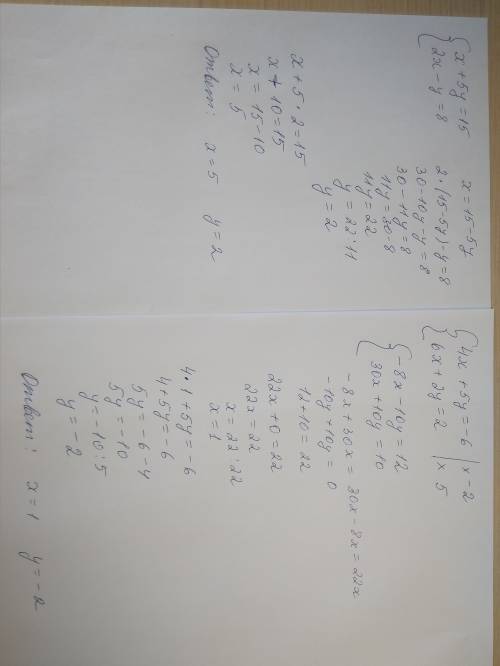 { x + 5y = 15
{ 2x - y = 8
x = 15 - 5y
2 · (15 - 5y) - y = 8
30 - 10y - y = 8
30 - 11y = 8
11y = 30 - 8
11y = 22
y = 22 : 11
y = 2
x + 5 · 2 = 15
x + 10 = 15
x = 15 - 10
x = 5
Ответ: x = 5 y = 2
{ 4x + 5y = -6 | x - 2
{ 6x + 2y = 2 | x 5
{ -8x - 10y = 12
{ 30x + 10y = 10
-8x + 30x = 30x - 8x = 22x
-10y + 10y = 0
12 + 10 = 22
22x + 0 = 22
22x = 22
x = 22 : 22
x = 1
4 · 1 + 5y = -6
4 + 5y = -6
5y = -6 - 4
5y = -10
y = -10 : 5
y = -2
Ответ: x = 1 y = -2